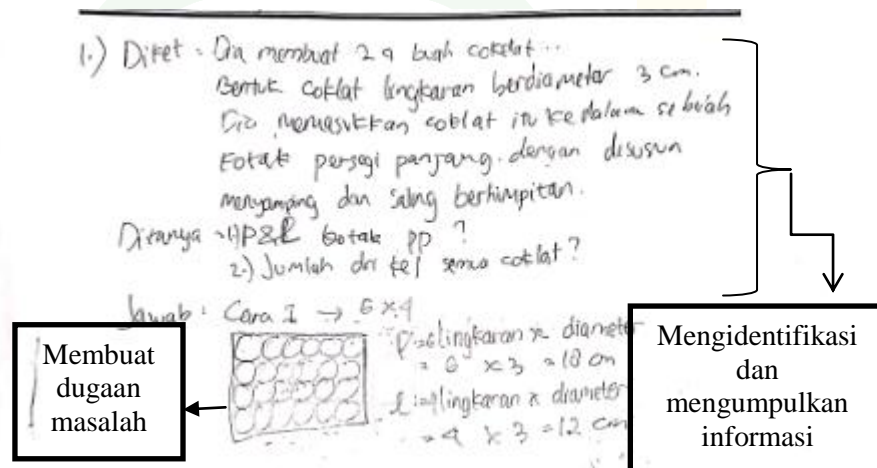 1.) Diket : Dia membuat 24 buah cokelat...
Bentuk coklat lingkaran berdiameter 3 cm.
Dia memasukkan coklat itu ke dalam sebuah
kotak persegi panjang. dengan disusun
menyamping dan saling berhimpitan.
Ditanya : 1) P&L kotak PP ?
2.) Jumlah dri kel semua coklat?
Jawab : Cara I → 6 x 4
P = 6 lingkaran x diameter
= 6 x 3 = 18 cm
l = 4 lingkaran x diameter
= 4 x 3 = 12 cm
Membuat
dugaan
masalah
Mengidentifikasi
dan
mengumpulkan
informasi